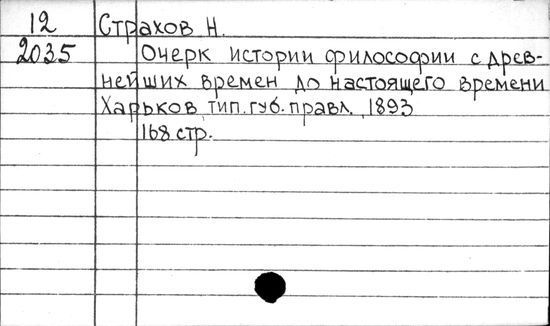 12 Страхов Н.
2035 Очерк истории философии с древ-
нейших времен до настоящего времени
Харьков, тип. губ. правл., 1893
168 стр.